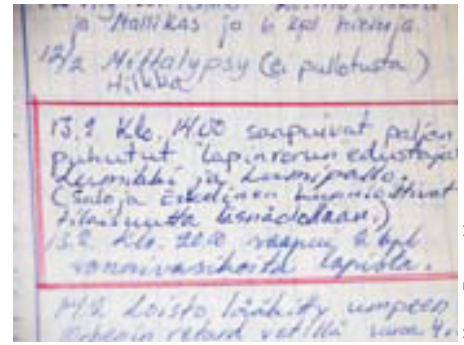 ja Mallikas ja 6 kpl hiehoja.
12/2 Mittalypsy (ei pullotusta)
Hilkka
13.2 Klo. 14.00 saapuivat paljon
puhutut Lapinrorun edustajat
Lumikki ja Lumipallo.
(Salo ja Eskelinen kunnioittivat
tilaisuutta läsnäolollaan.)
13.2 Klo. 20.00 saapui 2 kpl
sonnivasikoita Lapista.
14.2 Loisto, lääkitty umpeen